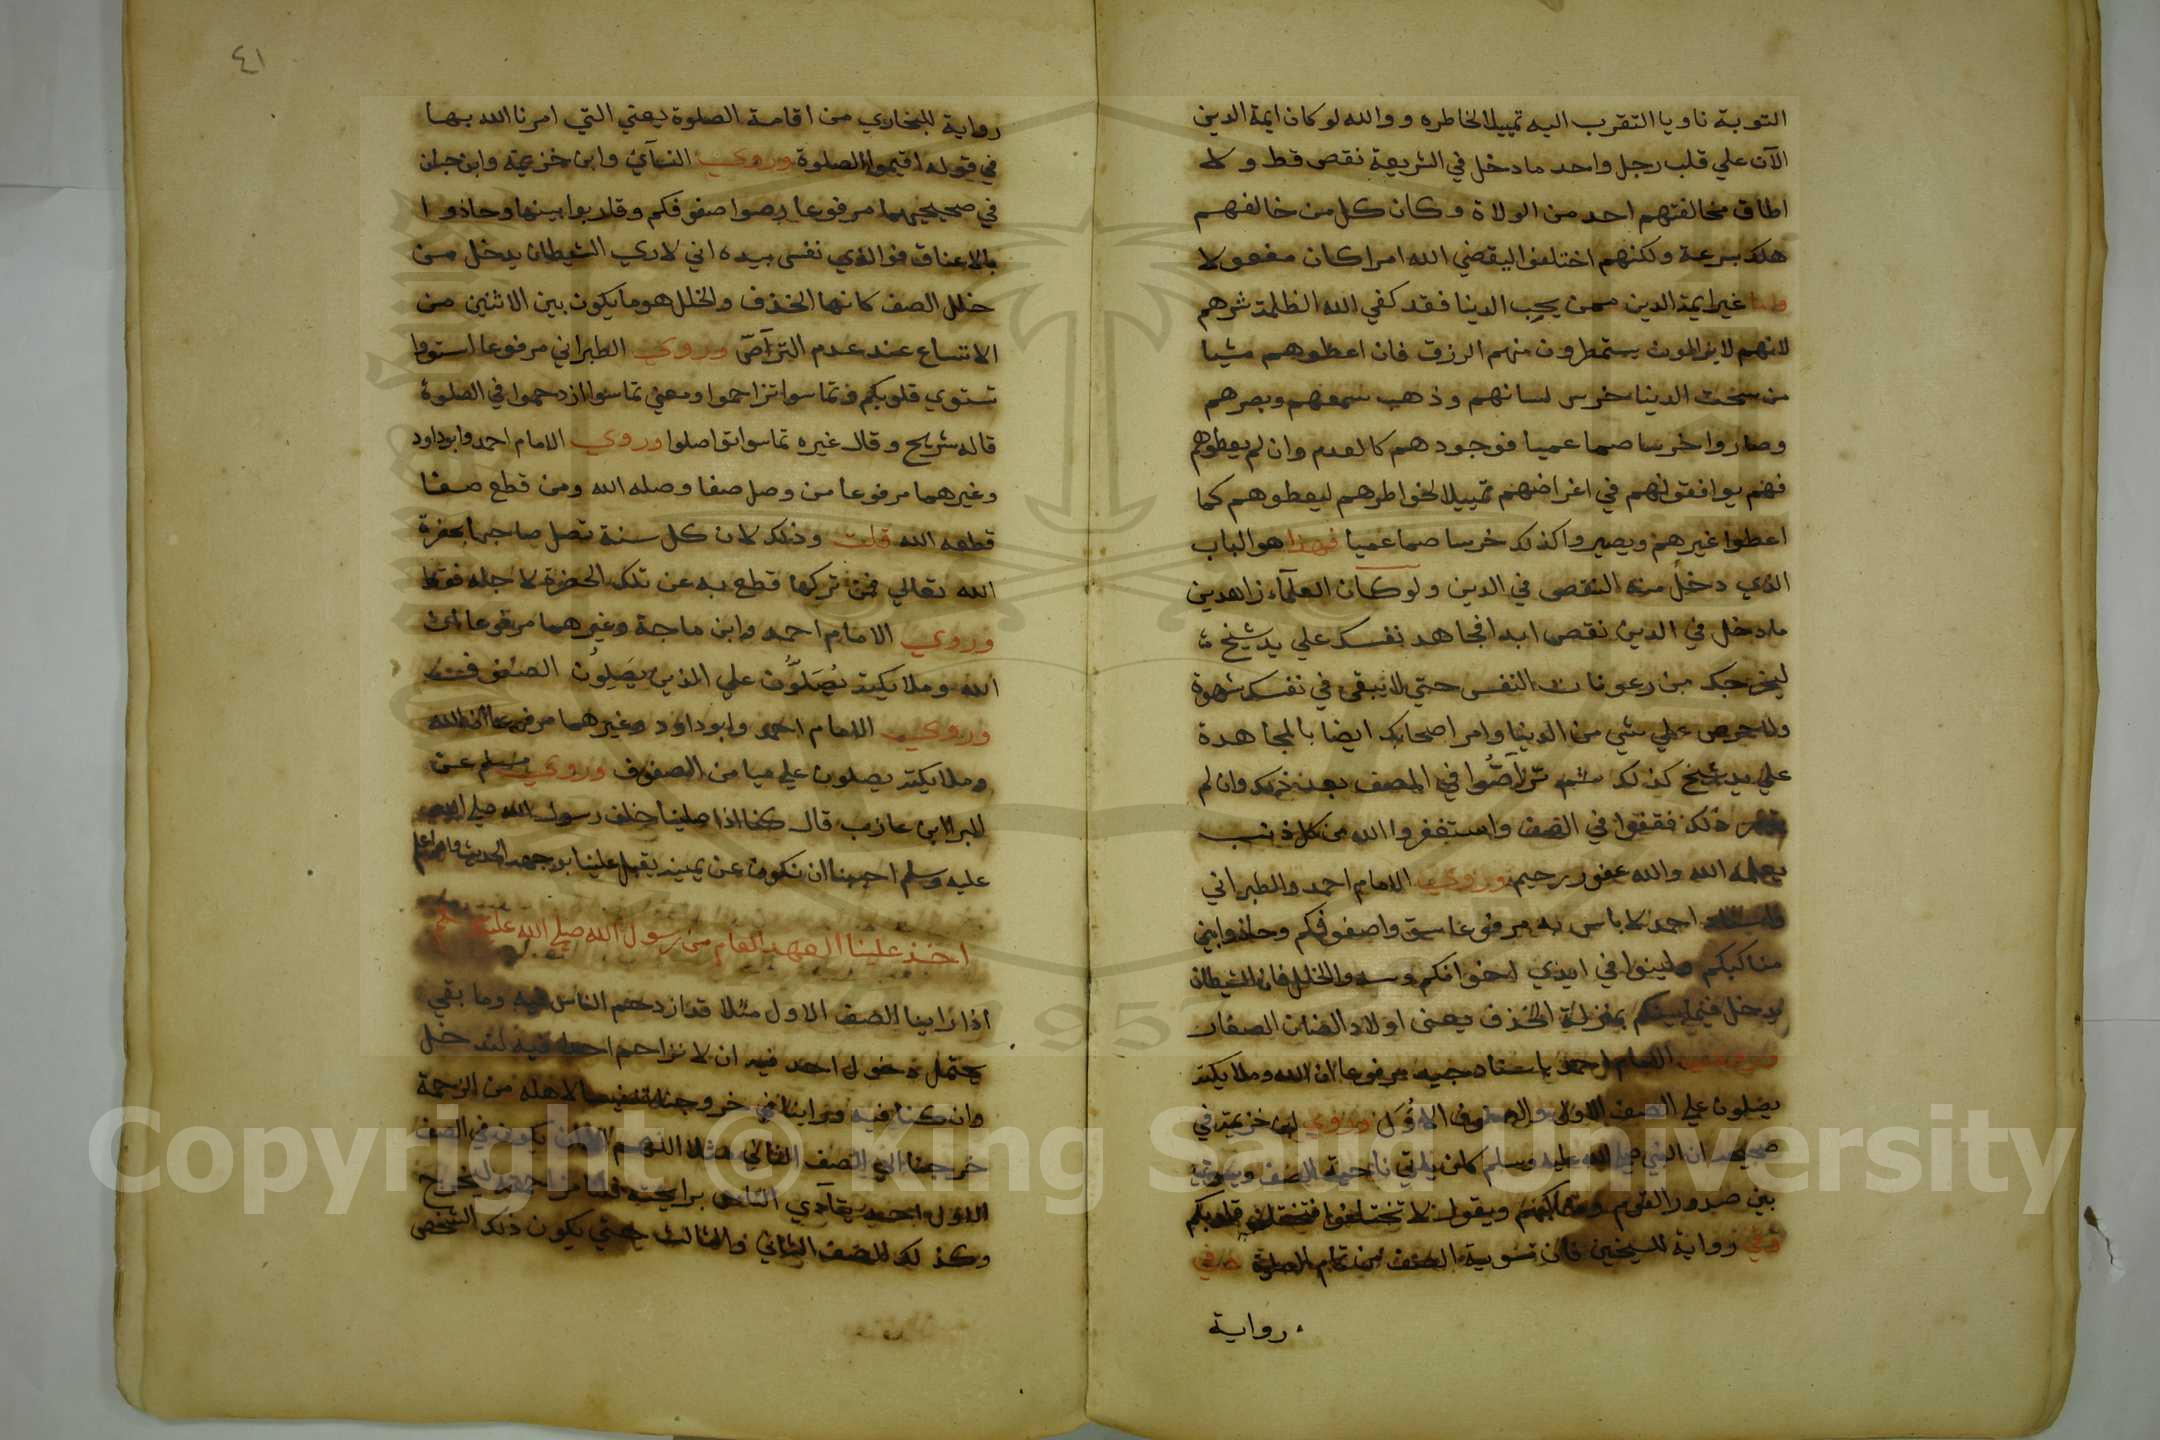 التوبة ناويا التقرب اليه تمييلا لخاطره ووالله لو كان ايمة الدين
الآن علي قلب رجل واحد ما دخل في الشريعة نقص قط ولا
اطاق مخالفتهم احد من الولاة وكان كل من خالفهم
هلك بسرعة ولكنهم اختلفوا ليقضي الله امرا كان مفعولا
واما غير ايمة الدين ممن يحب الدنيا فقد كفي الله الظلمة شرهم
لانهم لا يزالون يستمطرون منهم الرزق فان اعطوهم شيا
من سحت الدنيا خرس لسانهم وذهب سمعهم وبصرهم
وصاروا خرسا صما عميا فوجودهم كالعدم وان لم يعطوهم
فهم يوافقونهم في اغراضهم تمييلا لخواطرهم ليعطوهم كما
اعطوا غيرهم ويصيروا كذلك خرسا صما عميا فهذا هو الباب
الذي دخل منه النقص في الدين ولو كان العلمآء زاهدين
ما دخل في الدين نقص ابدا فجاهد نفسك علي يد شيخ
ليخرجك من رعونات النفس حتي لا يبقي في نفسك شهوة
ولا حرص علي شي من الدنيا وامر اصحابك ايضا بالمجاهدة
علي يد شيخ كذلك ثم تراصُّوا في الصف بعد ذلك وان لم
ذلك فقفوا في الصف واستغفروا الله من كل ذنب
يعلمه الله والله غفور رحيم وروي الامام احمد والطبراني
احمد لا باس به مرفوعا سووا صفوفكم وحاذوا بين
مناكبكم ولينوا في ايدي اخوانكم وسدوا الخلل فان الشيطان
يدخل فيما بينكم بمنزلة الخذف يعني اولاد الضان الصغار
وروي الامام احمد باسناد جيد مرفوعا ان الله وملايكته
يصلون علي الصف الاول والصفوف الاُوَل وروي ابن خزيمة في
صحيحه ان النبي صلي الله عليه وسلم كان ياتي ناحية الصف ويسوي
بين صدور القوم ومناكبهم ويقول لا تختلفوا فتختلف قلوبكم
وفي رواية للشيخين فان تسوية الصف من تمام الصلوة وفي
رواية
٤١
رواية للبخاري من اقامة الصلوة يعني التي امرنا الله بها
في قوله اقيموا الصلوة وروي النسآئي وابن خزيمة وابن حبان
في صحيحيهما مرفوعا رصوا صفوفكم وقاربوا بينها وحاذوا
بالاعناق فوالذي نفسي بيده اني لاري الشيطان يدخل من
خلل الصف كانها الخذف والخلل هو ما يكون بين الاثنين من
الاتساع عند عدم التراصّ وروي الطبراني مرفوعا استووا
تستوي قلوبكم وتماسوا تزاحموا ومعني تماسوا ازدحموا في الصلوة
قاله شريح وقال غيره تماسوا تواصلوا وروي الامام احمد وابو داود
وغيرهما مرفوعا من وصل صفا وصله الله ومن قطع صفا
قطعه الله قلت وذلك لان كل سنة تصل صاحبها بحضرة
الله تعالي فمن تركها قطع به عن تلك الحضرة لاجله فوتها
وروي الامام احمد وابن ماجة وغيرهما مرفوعا ان
الله وملايكته يُصَلُّون علي الذين يَصِلُون الصفوف
وروي الامام احمد وابو داود وغيرهما مرفوعا ان الله
وملايكته يصلون علي ميامن الصفوف وروي مسلم عن
البرا ابن عازب قال كنا اذا صلينا خلف رسول الله صلي الله
عليه وسلم احببنا ان نكون عن يمينه يقبل علينا بوجهه الحديث والله اعلم
اخذ علينا العهد العام من رسول الله صلي الله عليه وسلم
اذا راينا الصف الاول مثلا قد ازدحم الناس فيه وما بقي
يحتمل دخول احد فيه ان لا نزاحم احدا فيه لندخل
وان كنا فيه وراينا في خروجنا تنفيسا لاهله من الزحمة
خرجنا الي الصف الثاني مثلا اللهم الا ان يكون في الصف
الاول احد يتآذي الناس برايحته فلنا مزاحمته ليخرج
وكذلك الصف الثاني والثالث حتي يكون ذلك الشخص